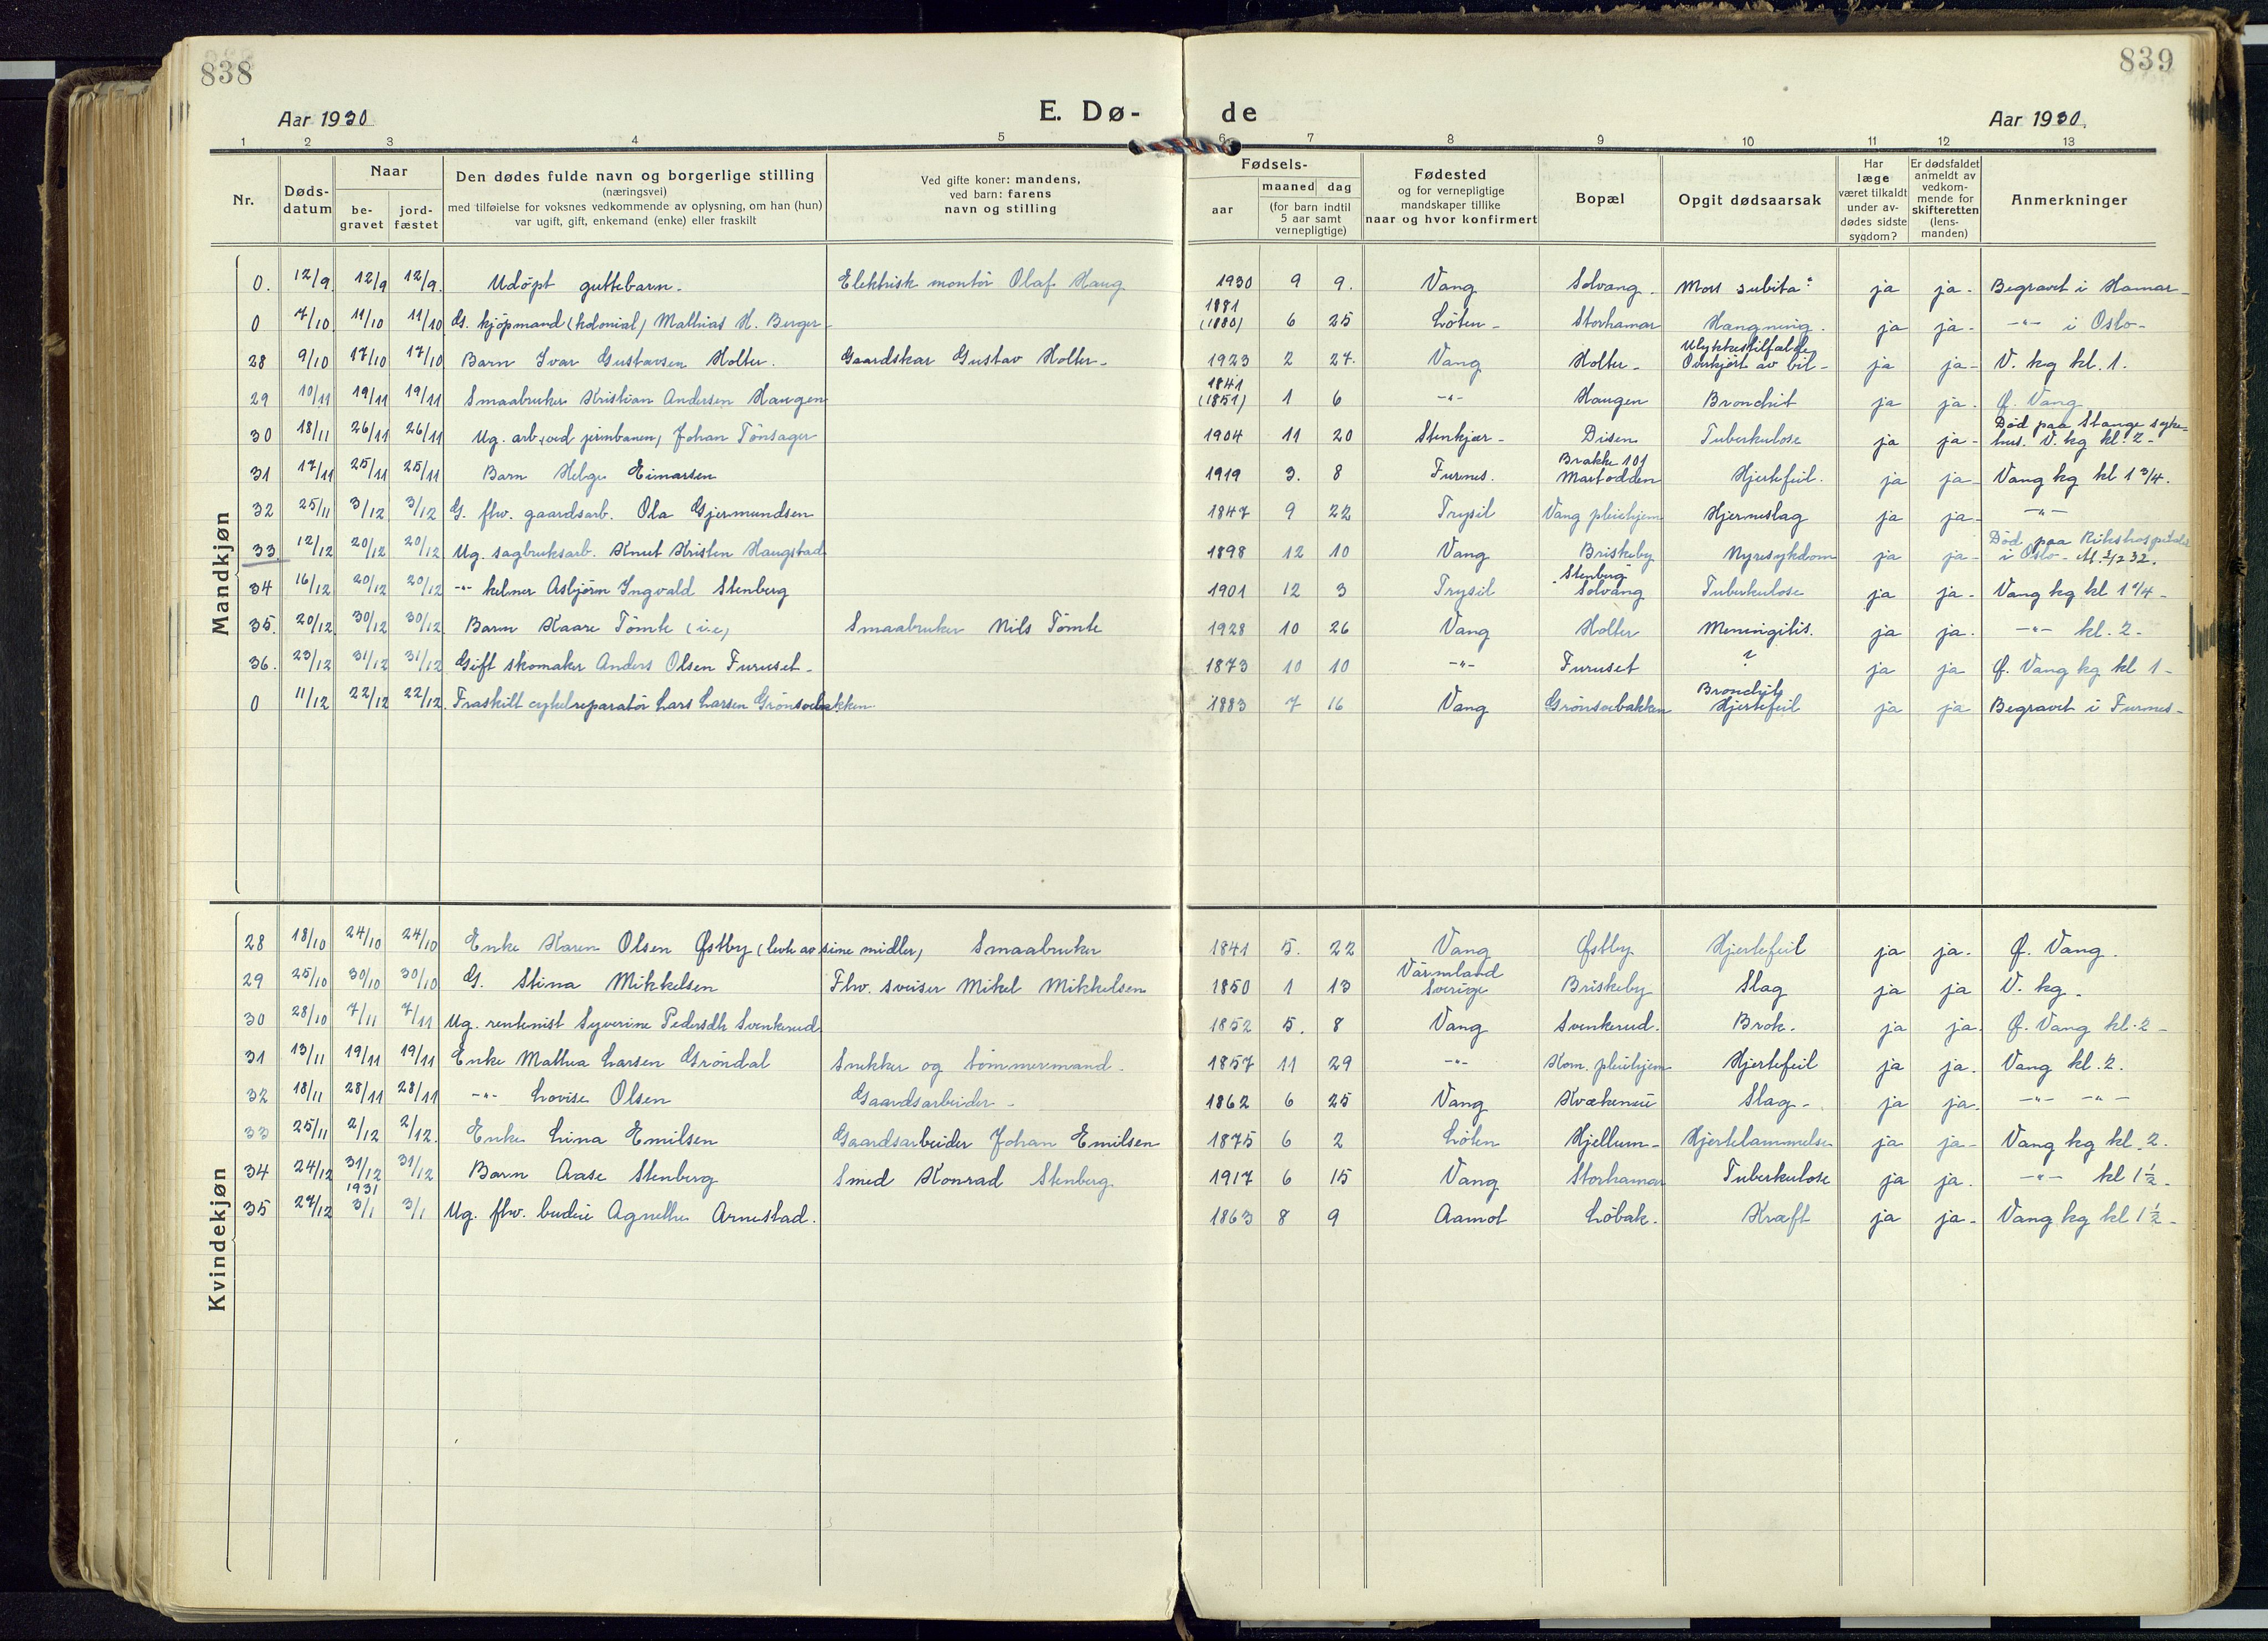 838
839
Aar 1930
E. Dø-
de
Aar 1930.
1 2 3 4 5 6 7 8 9 10 11 12 13
Nr.
Døds-
datum
Naar
be-
gravet
jord-
fæstet
Den dødes fulde navn og borgerlige stilling
(næringsvei)
med tilføielse for voksnes vedkommende av oplysning, om han (hun)
var ugift, gift, enkemand (enke) eller fraskilt
Ved gifte koner: mandens,
ved barn: farens
navn og stilling
Fødsels-
aar
maaned dag
(for barn indtil
5 aar samt
vernepligtige)
Fødested
og for vernepligtige
mandskaper tillike
naar og hvor konfirmert
Bopæl
Opgit dødsaarsak
Har
læge
været tilkaldt
under av-
dødes sidste
sygdom?
Er dødsfaldet
anmeldt av
vedkom-
mende for
skifteretten
(lens-
manden)
Anmerkninger
Mandkjøn
0. 12/9. 12/9 12/9. Udöpt guttebarn. Elektrisk montör Olaf Haug 1930 9 9. Vang Solvang. Mors subita? ja ja. Begravet i Hamar-
0 7/10 11/10 11/10 G. kjöpmand (kolonial) Mathias H. Berger- 1881 (1880) 6 25 Löten- Storhamar Hængning. ja ja- -"- i Oslo-
28 9/10 17/10 17/10 Barn Ivar Gustavsen Holter. Gaardskar Gustav Holter- 1923 2 24. Vang Holter- Ulykkestilfælde Overkjört av bil- ja ja- V. kg kl. 1.
29 10/11 19/11 19/11 Smaabruker Kristian Andersen Haugen 1841 (1851) 1 6 -"- Haugen Bronchit ja ja. Ø. Vang
30 18/11 26/11 26/11 Ug. arb. (ved jernbanen) Johan Tönsager 1904 11 20 Stenkjær- Disen Tuberkulose ja ja- Död paa Stange syke- hus. V. kg kl. 2-
31 17/11 25/11 25/11 Barn Helge Eimarsen 1919 3. 8 Furnes. Brakke 101 Martodden Hjertefeil. ja ja- Vang kg kl 1 3/4.
32 25/11 3/12 3/12 G. fhv. gaardsarb. Ola Gjermundsen 1847 9 22 Trysil Vang pleiehjem Hjerneslag ja ja- -"-
33 12/12 20/12 20/12 Ug. sagbruksarb. Knut Kristen Haugstad 1898 12 10 Vang Briskeby Nyresykdom ja ja- Död paa Rikshospitalet i Oslo-
34 16/12 20/12 20/12 -"- kelner Asbjörn Ingvald Stenberg 1901 12 3 Trysil Stenberg Solvang Tuberkulose ja ja- Vang kg kl 1 1/4-
35. 20/12 30/12 30/12 Barn Kaare Tömte (i.e) Smaabruker Nils Tömte 1928 10 26 Vang Holter Meningitis. ja ja. -"- kl. 2-
36. 23/12 31/12 31/12 Gift skomaker Anders Olsen Furuset- 1873 10 10 -"- Furuset ? ja ja Ø. Vang kg kl 1-
0 11/12 22/12 22/12. Fraskilt cykelreparatör Lars Larsen Grönsvebakken. 1883 7 16 Vang Grönsvebakken Bronchit Hjertefeil ja ja Begravet i Furnes-
Kvindekjøn
28 18/10 24/10 24/10 Enke Karen Olsen Østby (levte av sine midler) Smaabruker 1841 5. 22 Vang Østby Hjertefeil ja ja. Ø. Vang.
29 25/10 30/10 30/10 G. Stina Mikkelsen Fhv. sveiser Mikel Mikkelsen 1850 1 13 Värmland Sverige Briskeby Slag ja ja V. kg.
30 28/10 7/11 7/11 Ug. rentenist Syverine Pedersdtr Svenkerud 1852 5. 8 Vang Svenkerud. Brok. ja ja. Ø. Vang kl. 2-
31 13/11 19/11 19/11 Enke Mathea Larsen Gröndal Snekker og tömmermand. 1857 11 29 -"- Kom. pleiehjem Hjertefeil ja ja. Vang kl. 2.
32 18/11 28/11 28/11 -"- Lovise Olsen Gaardsarbeider- 1862 6 25 Vang Slag- ja ja. -"- -"-
33 25/11 2/12 2/12. Enke Lina Emilsen Gaardsarbeider Johan Emilsen 1875 6 2 Löten Hjellum- Hjertelammelse ja ja- Vang kg kl. 2.
34 24/12 31/12 31/12 Barn Aase Stenberg Smed Konrad Stenberg. 1917 6 15 Vang Storhamar Tuberkulose ja ja. -"- kl 1 1/2-
35 27/12 1931 3/1 3/1 Ug. fhv. budeie Agnethe Arnestad. 1863 8 9 Aamot Löbak. Kræft ja ja- Vang kg kl 1 1/2-